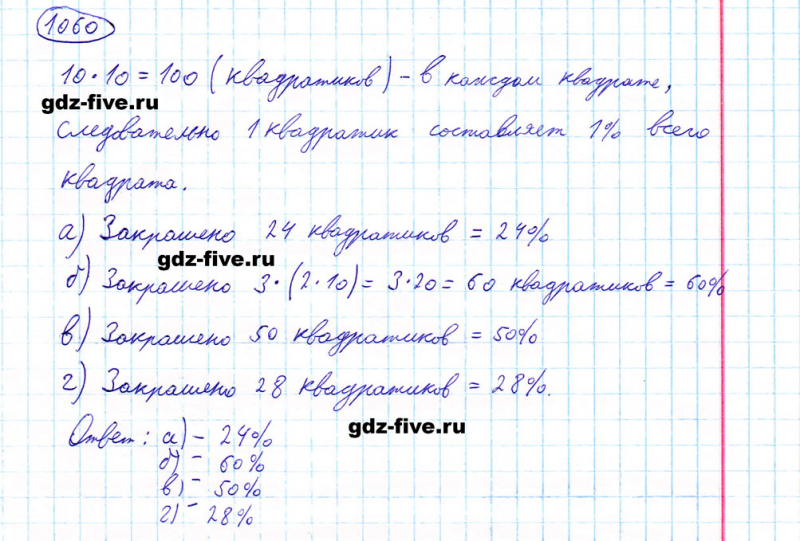 1060
10 · 10 = 100 (квадратиков) - в каждом квадрате,
gdz-five.ru
следовательно 1 квадратик составляет 1% всего
квадрата.
а) Закрашено 24 квадратиков = 24%
gdz-five.ru
б) Закрашено 3 · (2 · 10) = 3 · 20 = 60 квадратиков = 60%
в) Закрашено 50 квадратиков = 50%
г) Закрашено 28 квадратиков = 28%.
Ответ: а) - 24%
gdz-five.ru
б) - 60%
в) - 50%
г) - 28%